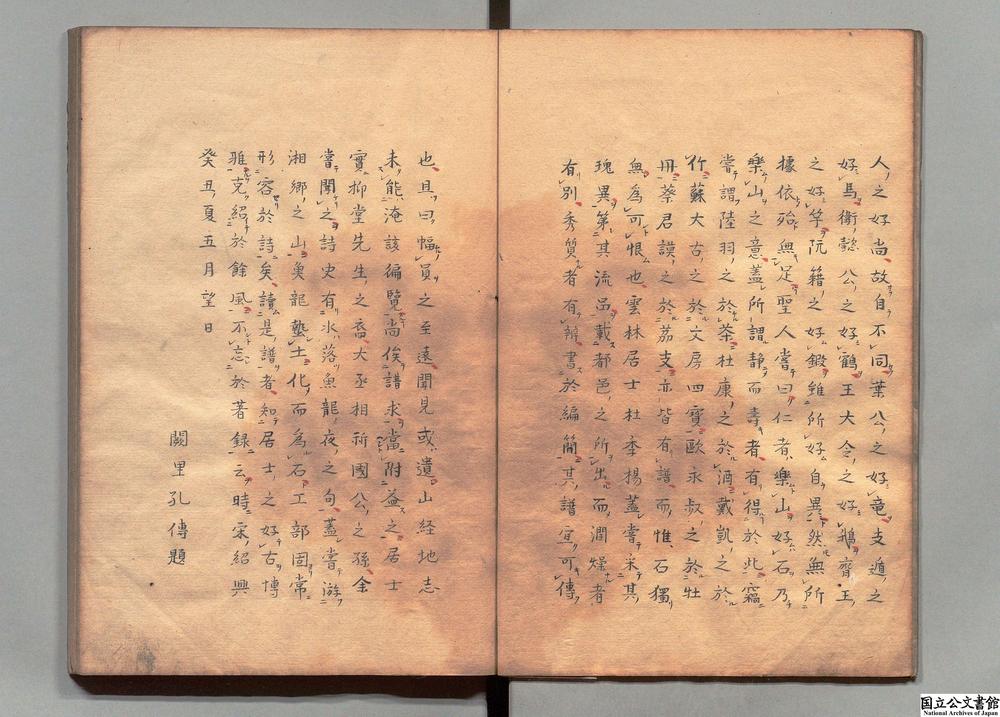 人之好尚故自不同葉公之好竜支遁之
好馬衛懿公之好鶴王大令之好鵝齊王
之好竽阮籍之好鍛雖所好自異然無所
據依殆無足聖人嘗曰仁者樂山好石乃
樂山之意蓋所謂静而壽者有得於此竊
嘗謂陸羽之於茶杜康之於酒戴凱之於
竹蘇大古之於文房四寳歐永叔之於牡
丹蔡君謨之於茘支亦皆有譜而惟石獨
無為可恨也雲林居士杜季揚蓋嘗采其
瑰異第其流品載都邑之所出而潤燥者
有別秀質者有辯書於編簡其譜宜可傳
也且曰幅員之至遠聞見或遺山経地志
未能淹該徧覽尚俟譜求當附益之居士
實抑堂先生之裔大丞相祈國公之孫余
嘗聞之詩史有水落魚龍夜之句蓋嘗游
湘郷之山魚龍蟄土化而為石工部固常
形容於詩矣讀是譜者知居士之好古博
雅克紹於餘風不忘於著録云時宋紹興
癸丑夏五月望日
闕里孔傳題
国立公文書館
National Archives of Japan